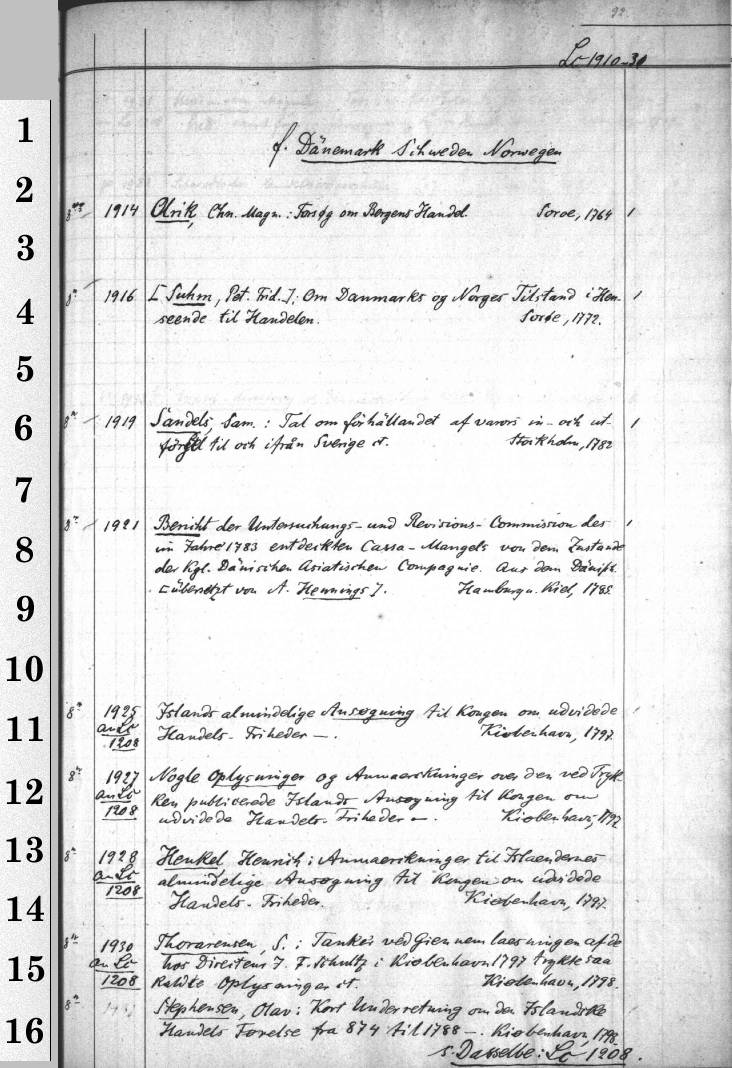 92
Lo 1910-30
1
f. Dänemark Schweden Norwegen
2
8° 1914 Olrik, Chn. Magn.: Forsøg om Bergens Handel. Soroe, 1764 1
3
8° 1916 [Suhm, Pet. Frid.]: Om Danmarks og Norges Tilstand i Hen- 1
4
seende til Handelen. Sorøe, 1772.
5
6
8° 1919 Sandels, Sam.: Tal om förhållandet af varors in- och ut- 1
försel til och ifrån Sverige et. Stockholm, 1782
7
8° 1921 Bericht der Untersuchungs- und Revisions-Commission des 1
8
im Jahre 1783 entdeckten Cassa-Mangels von dem Zustande
der Kgl. Dänischen Asiatischen Compagnie. Aus dem Dänisch.
[übersetzt von A. Hennings]. Hamburg u. Kiel, 1785.
9
10
8° 1925 Islands almindelige Ansøgning til Kongen om udvidede
11
an Lo Handels-Friheder —. Kiøbenhavn, 1797.
1208
8° 1927 Nogle Oplysninger og Anmaerkninger over den ved Tryk-
12
an Lo ken publicerede Islands Ansøgning til Kongen om
1208 udvidede Handels-Friheder —. Kiøbenhavn, 1797
13
8° 1928 Henkel, Henrich: Anmaerkninger til Islaendernes
an Lo almindelige Ansøgning til Kongen om udvidede
1208 Handels-Friheder. Kiøbenhavn, 1797.
14
8° 1930 Thorarensen, S.: Tanker ved Giennemlaesningen af de
15
an Lo hos Directeur J. F. Schultz i Kiøbenhavn 1797 trykte saa
1208 kaldte Oplysninger et. Kiøbenhavn, 1798.
8° Stephensen, Olav: Kort Underretning om den Islandske
16
Handels Førelse fra 874 til 1788 —. Kiøbenhavn, 1798.
s. Dasselbe: Lo 1208.